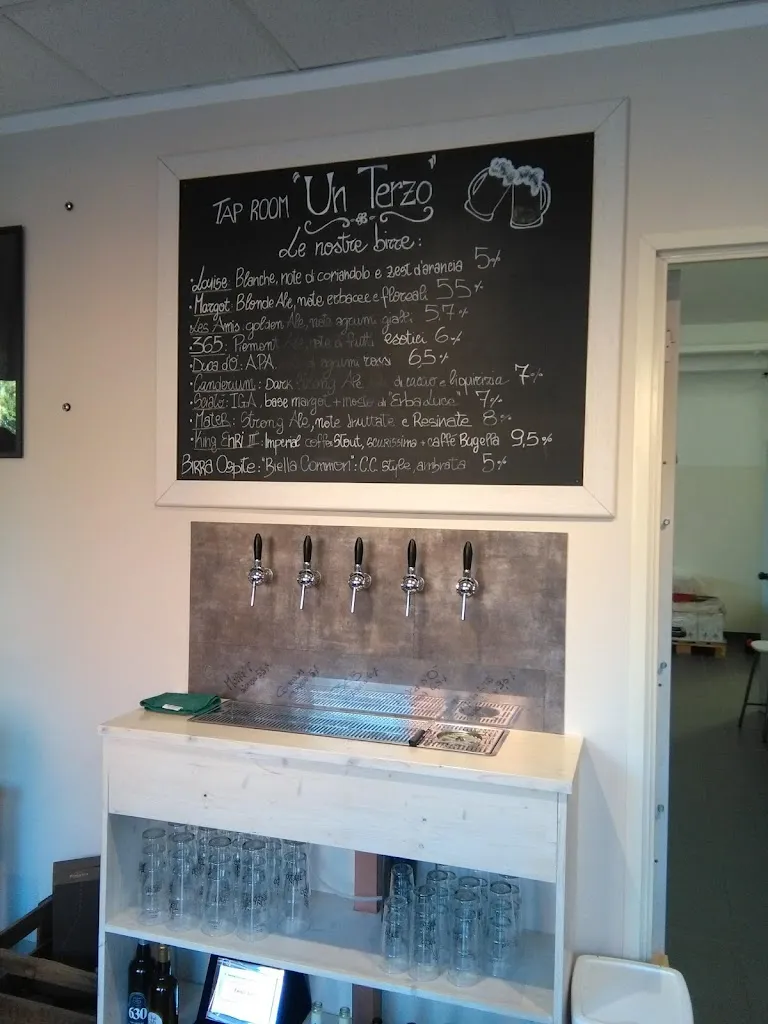 TAP ROOM "Un Terzo"
Le nostre birre:
•Louise: Blanche, note di coriandolo e zest d'arancia 5%
•Margot: Blonde Ale, note erbacee e floreali 5,5%
Les Amis: golden Ale, note agrumi gialli 5,7%
•365: Piemont Ale, note di frutti esotici 6%
•Duca d'O: APA, agrumi rossi 6,5%
•Canderium: Dark Strong Ale di cacao e liquirizia 7%
IGA, base margot + mosto di "Erbaluce" 7%
•Mater: Strong Ale, note fruttate e Resinate 8%
•King Enri III°: Imperial coffee Stout, scurissima + caffè Bugella 9,5%
BIRRA Ospite: "Biella Common": C.C. style, ambrata 5%
630